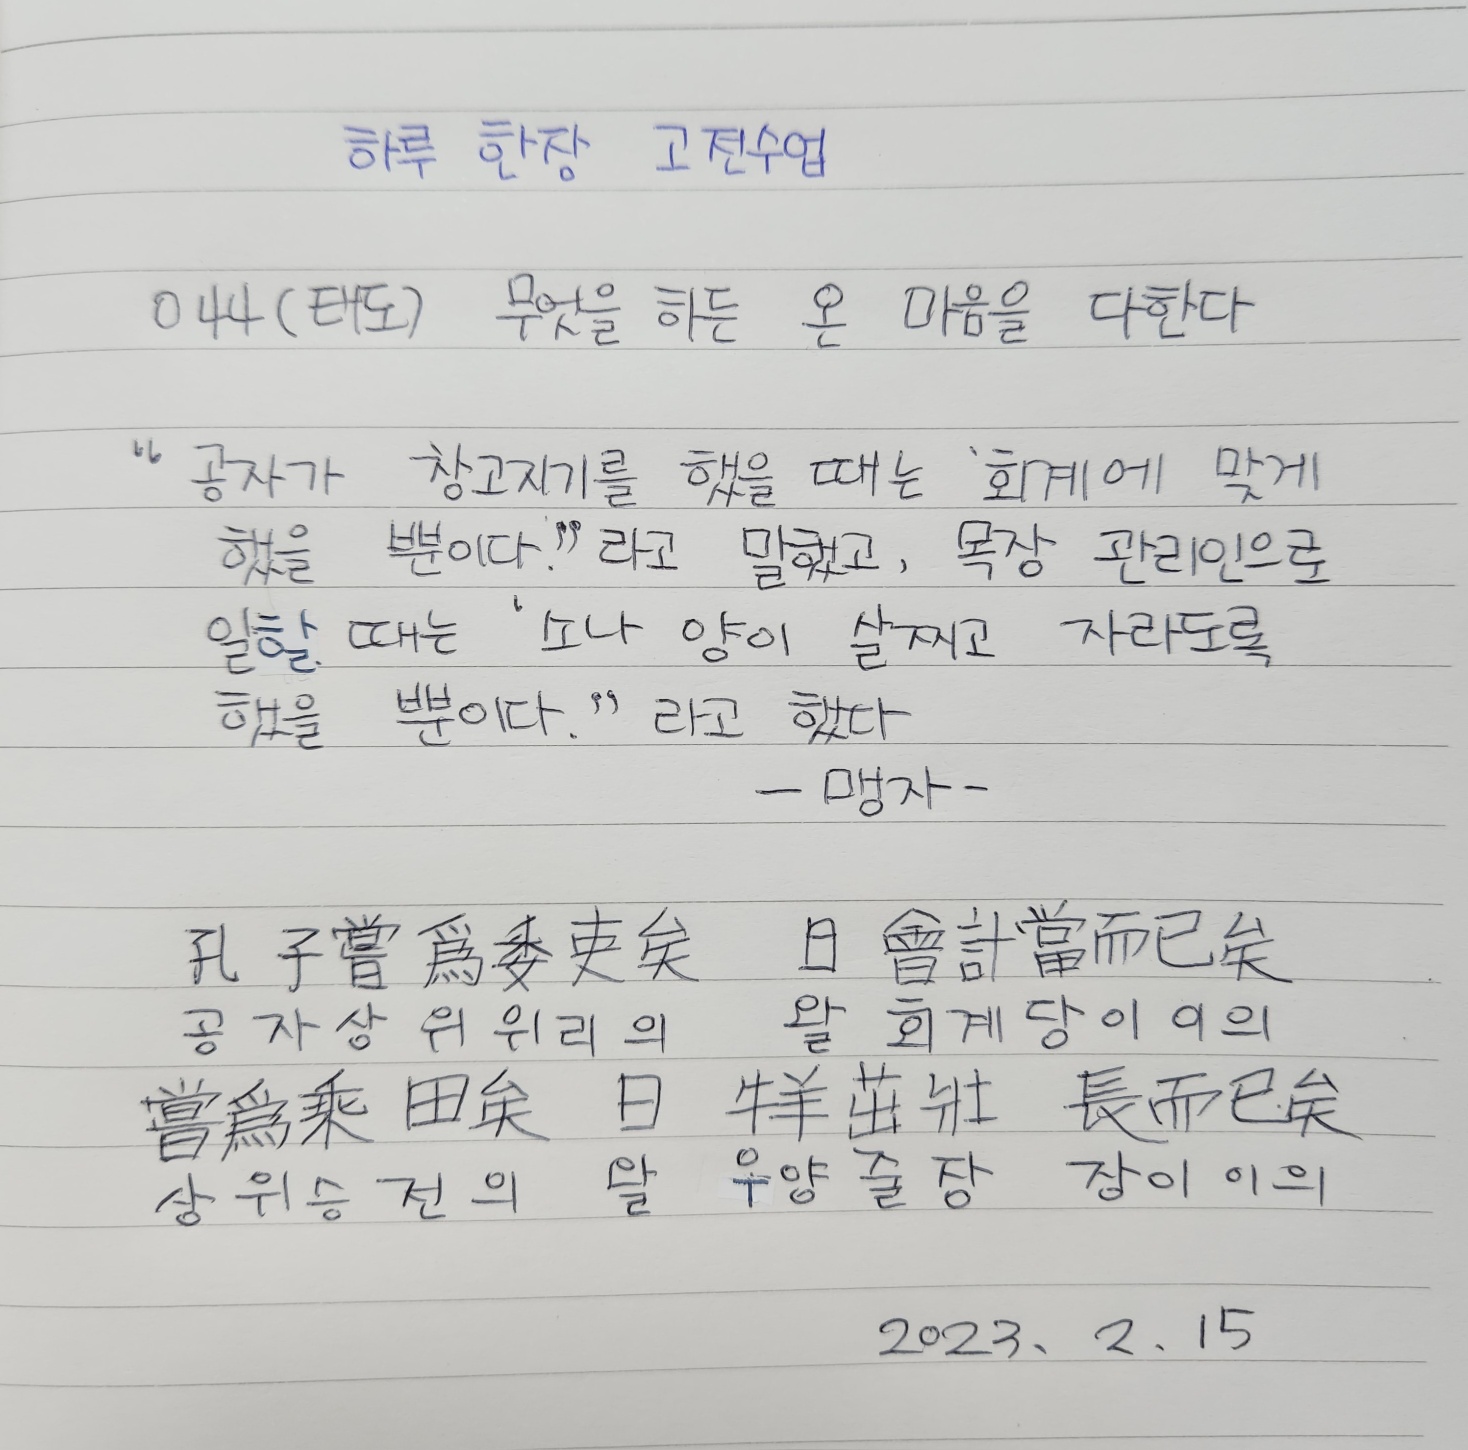 하루 한장 고전수업
044(태도) 무엇을 하든 온 마음을 다한다
“공자가 창고지기를 했을 때는 ‘회계에 맞게
했을 뿐이다.”라고 말했고, 목장 관리인으로
일할 때는 ‘소나 양이 살찌고 자라도록
했을 뿐이다.”라고 했다
-맹자-
孔子嘗爲委吏矣 曰 會計當而已矣
공자상위위리의 왈 회계당이이의
嘗爲乘田矣 曰 牛羊茁壯 長而已矣
상위승전의 왈 우양줄장 장이이의
2023. 2. 15